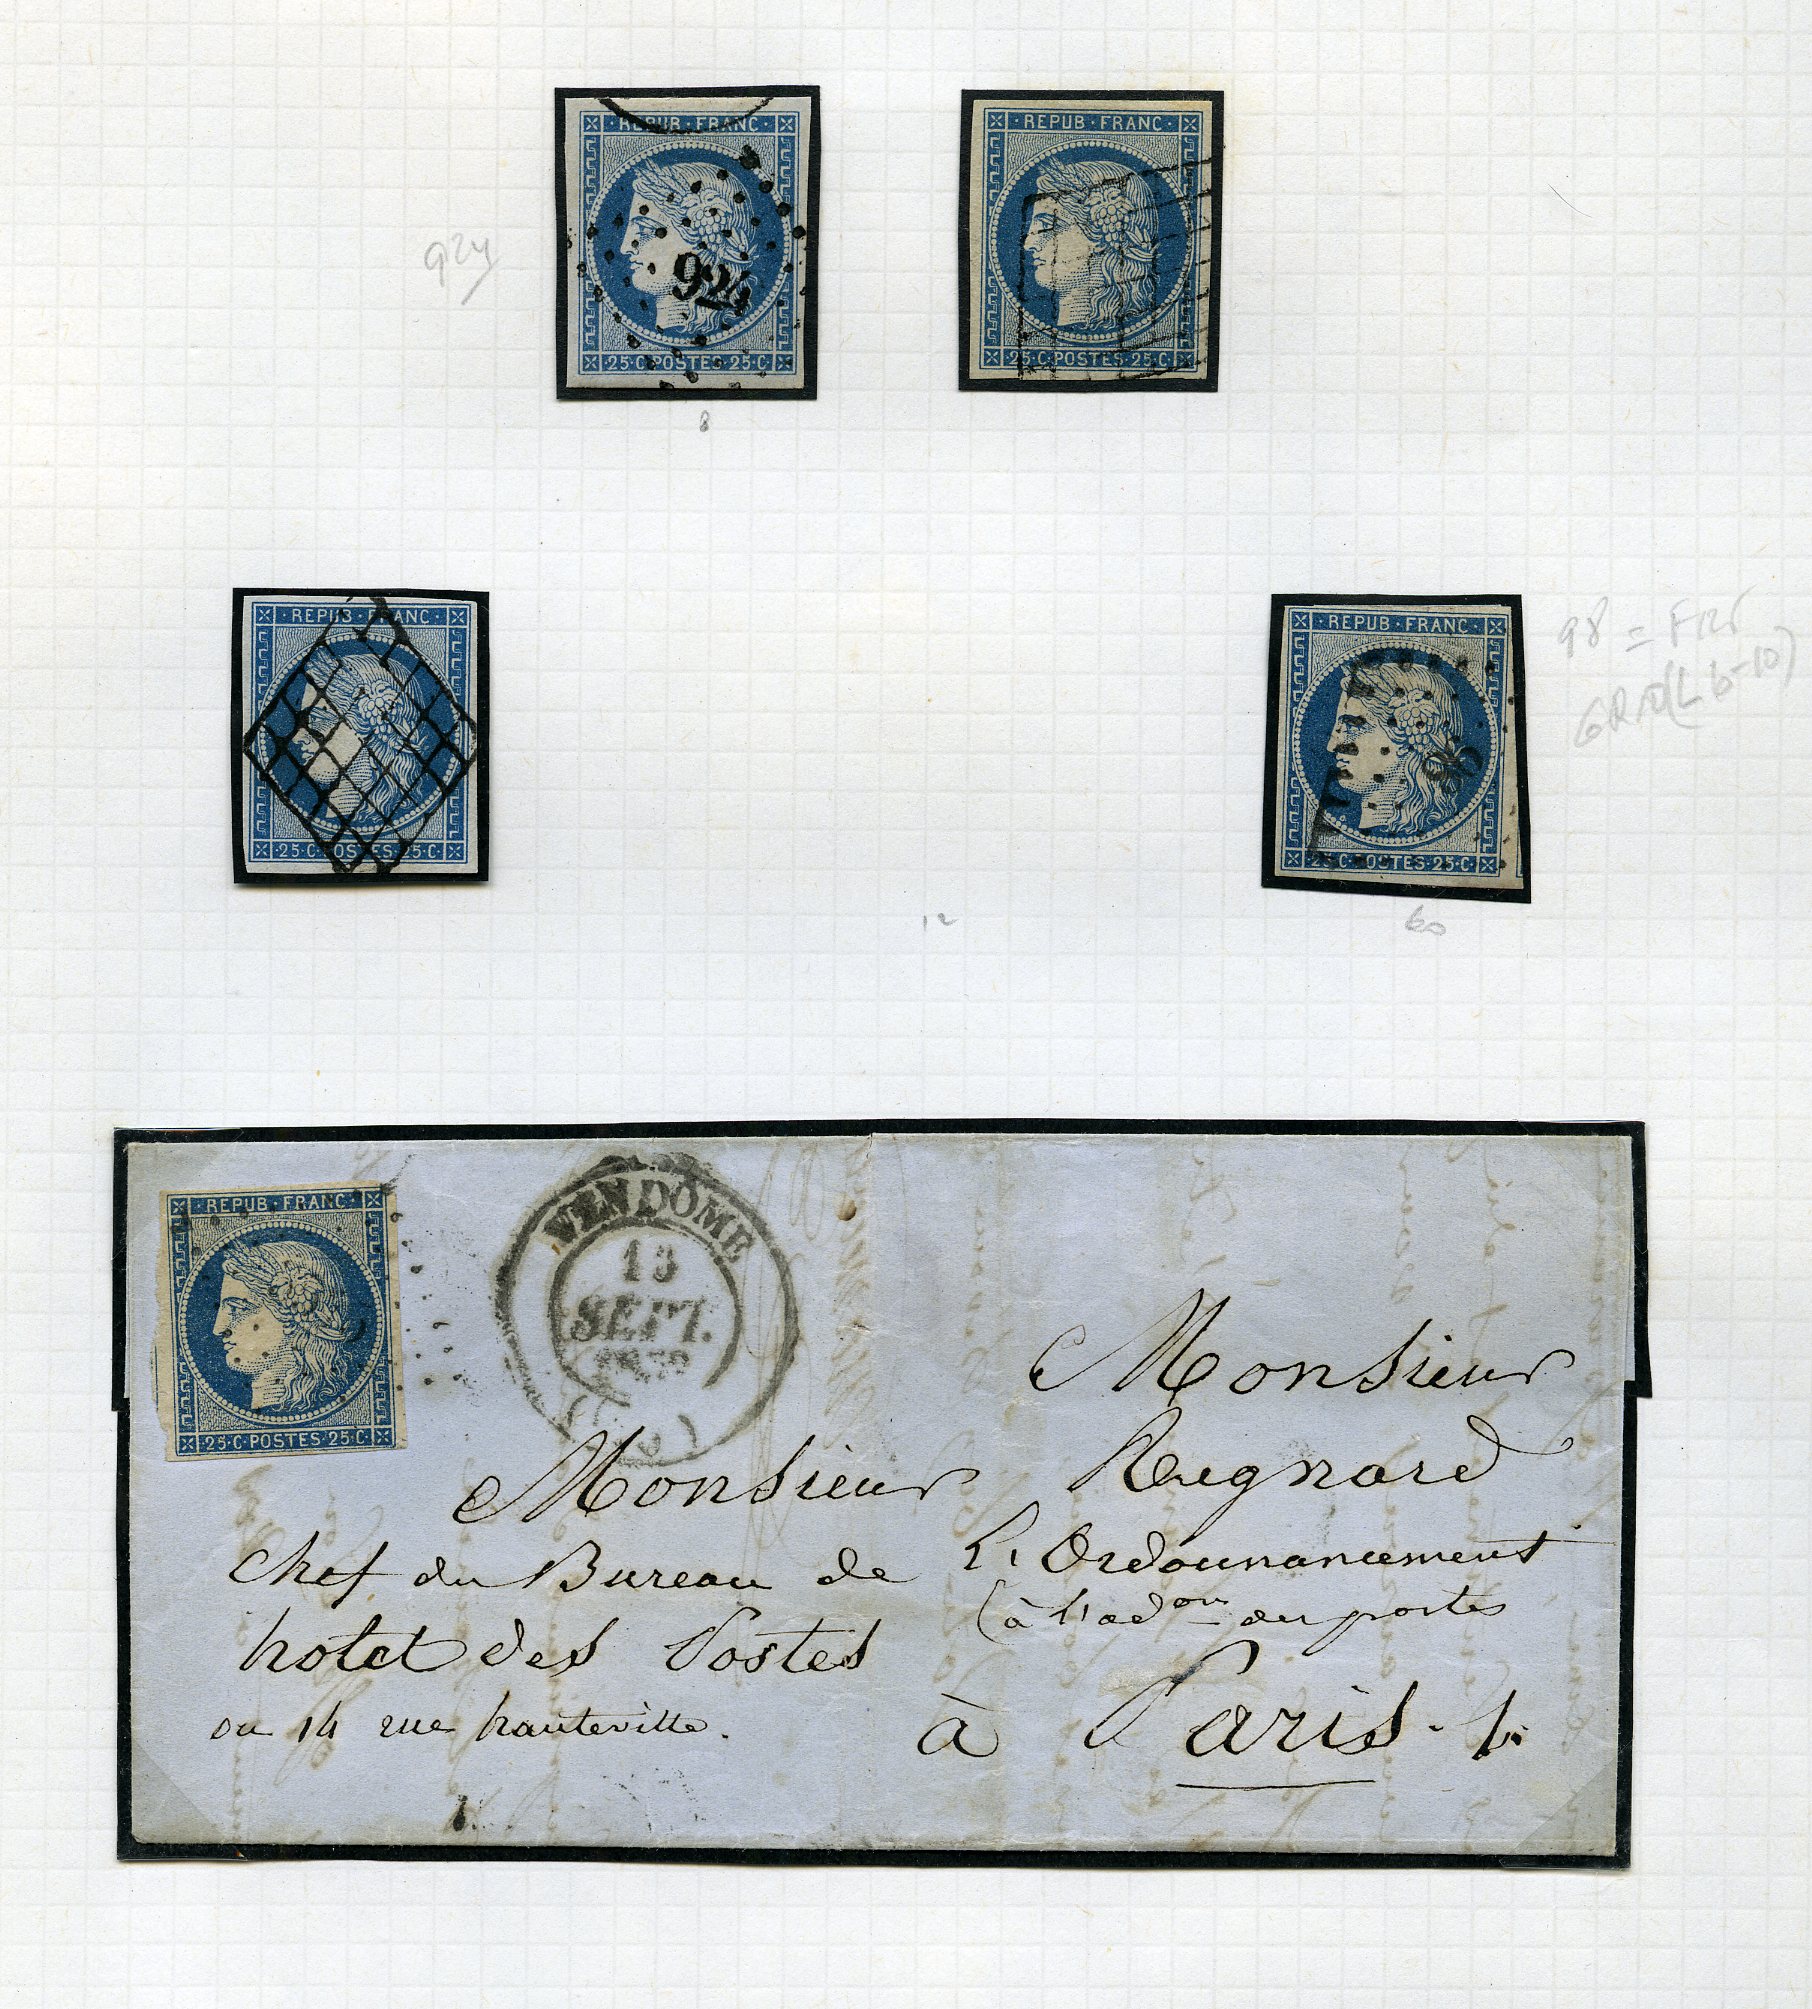 REPUB·FRANC·
924
25·C·POSTES·25·C·
924
8
·REPUB·FRANC·
25·C·POSTES·25·C·
·REPUB·FRANC·
·25·C·POSTES·25·C·
12
·REPUB·FRANC·
98
·25·C·POSTES·25·C·
98 =
60
·REPUB·FRANC·
·25·C·POSTES·25·C·
VENDÔME
13
SEPT.
1852
Monsieur
Regnard
Monsieur
Chef du Bureau de L'Ordonnancement
(à l'ad^on des postes
hotel des Postes
ou 14 rue hauteville.
à Paris.